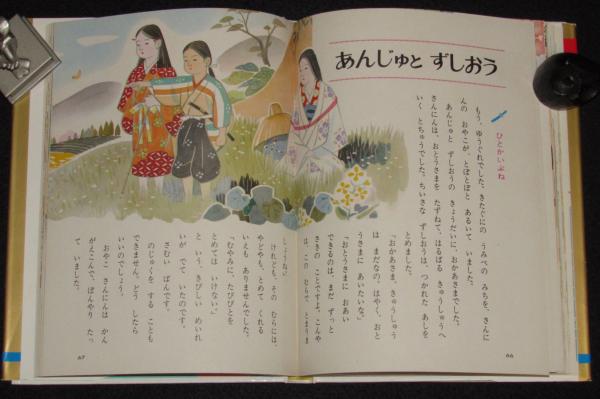 あんじゅと ずしおう
ひとかいぶね
もう、ゆうぐれでした。きたぐにの うみべの みちを、さんに
んの おやこが、とぼとぼと あるいて いました。
あんじゅと ずしおうの きょうだいに、おかあさまでした。
さんにんは、おとうさまを たずねて、はるばる きゅうしゅうへ
いく とちゅうでした。ちいさな ずしおうは、つかれた あしを
とめました。
「おかあさま、きゅうしゅう
は まだなの。はやく、おと
うさまに あいたいな。」
「おとうさまに おあい
できるのは、まだ ずっと
さきの ことですよ。こんや
は、この むらで、とまりま
しょうね。」
けれども、その むらには、
やどやも、とめて くれる
いえも ありませんでした。
「むやみに、たびびとを
とめては いけない。」
と いう、きびしい めいれ
いが でて いたのです。
さむい ばんです。
のじゅくを する ことも
できません。どう したら
いいのでしょう。
おやこ さんにんは かん
がえこんで、ぼんやり たっ
て いました。
66
67